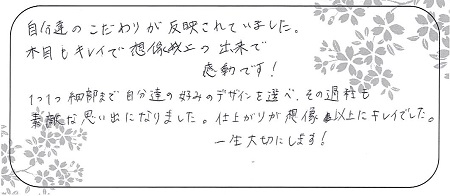 自分達のこだわりが反映されていました。
木目もキレイで想像以上の出来で
感動です！
1つ1つ細部まで自分達の好みのデザインを選べ、その過程も
素敵な思い出になりました。仕上がりが想像以上にキレイでした。
一生大切にします！